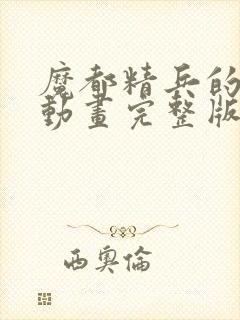 魔都精兵的
動畫完整版
西奧倫